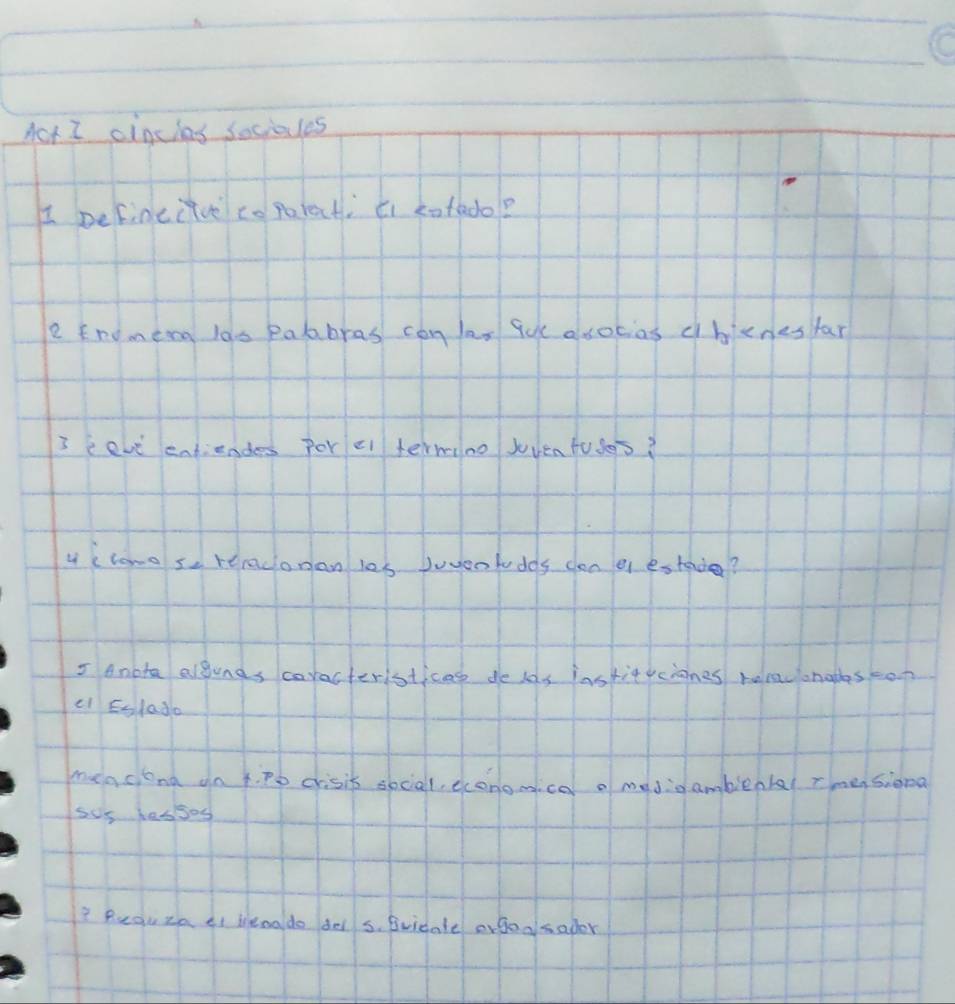 Act I cincias sociales
1 Define ¿Qué es para ti el estado?
2 Enumera las Palabras con las que asocias el bienestar
3 ¿Qué entiendes Por el termino Juventudes?
4 ¿como se relacionan las Juventudes con el estado?
5 Anota algunas caracteristicas de las instituciones relacionadas con
el Estado
menciona un tipo crisis social, económica o medioambiental y mensiona
sus
? el llenado del siguiente organisador